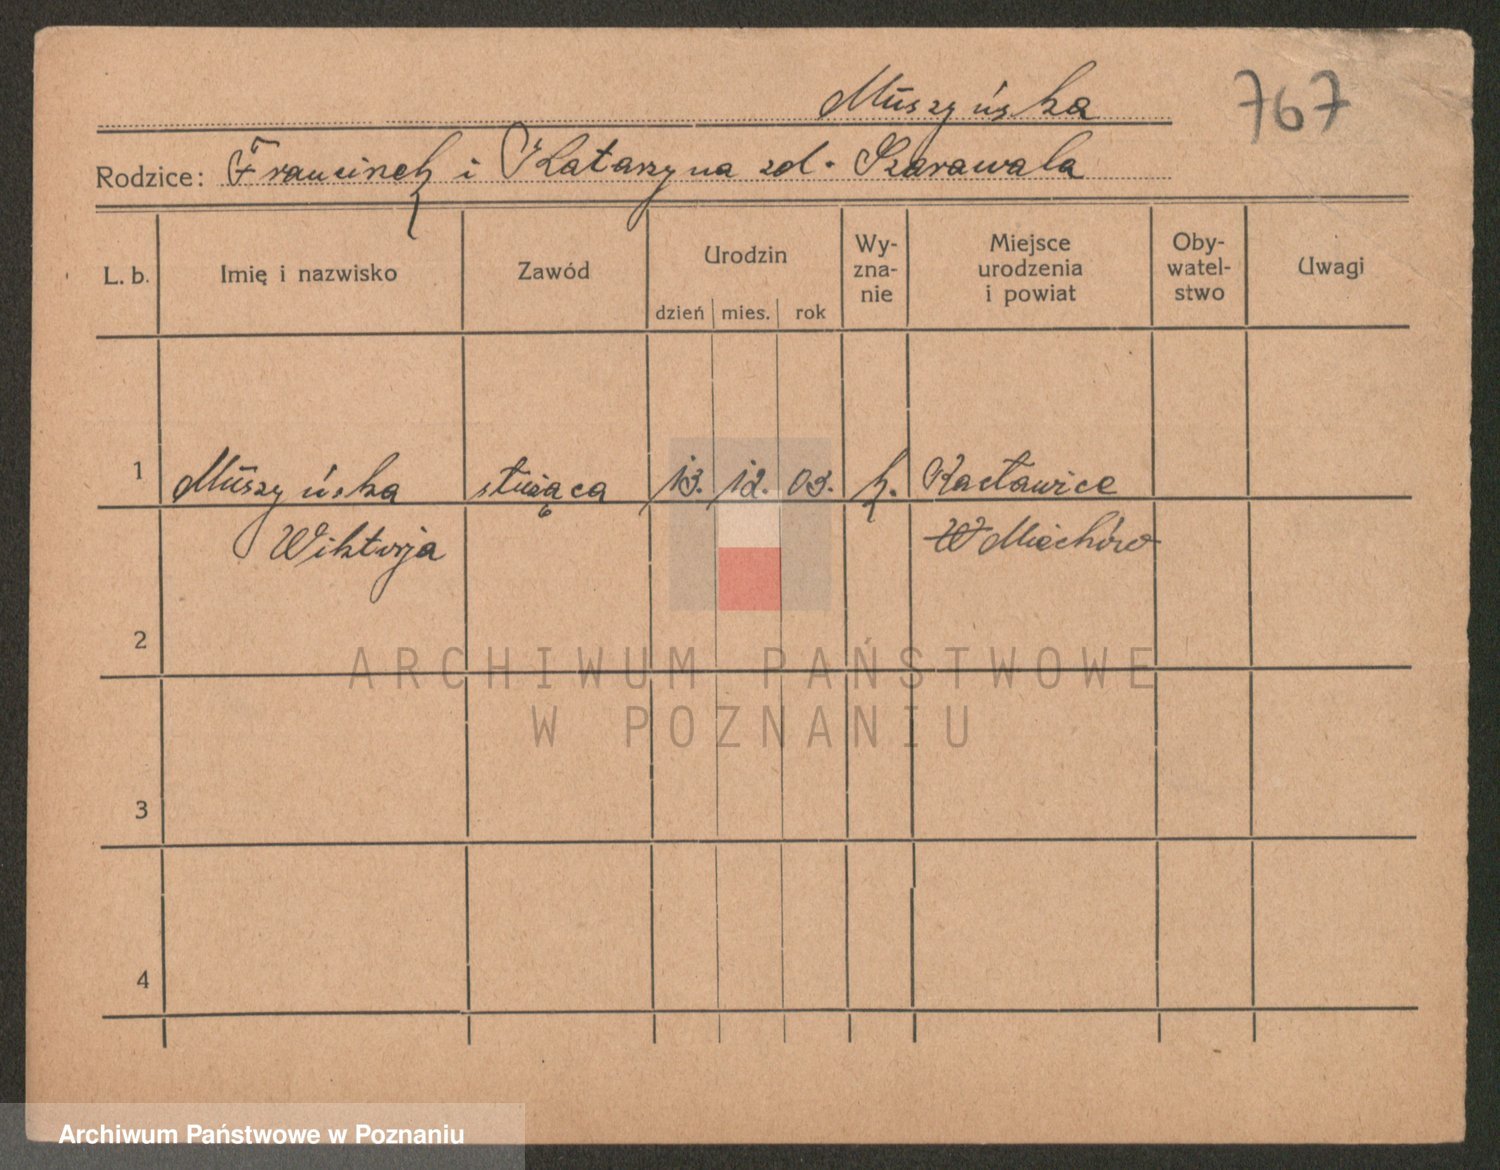 Muszyńska
767
Rodzice: Franciszek i Katarzyna zd. Szarawała
L. b. Imię i nazwisko Zawód Urodzin dzień mies. rok Wy-zna-nie Miejsce urodzenia i powiat Oby-watel-stwo Uwagi
1 Muszyńska służąca 13. 12. 03. k. Racławice
Wiktorja Miechów
2
ARCHIWUM PAŃSTWOWE
W POZNANIU
3
4
Archiwum Państwowe w Poznaniu